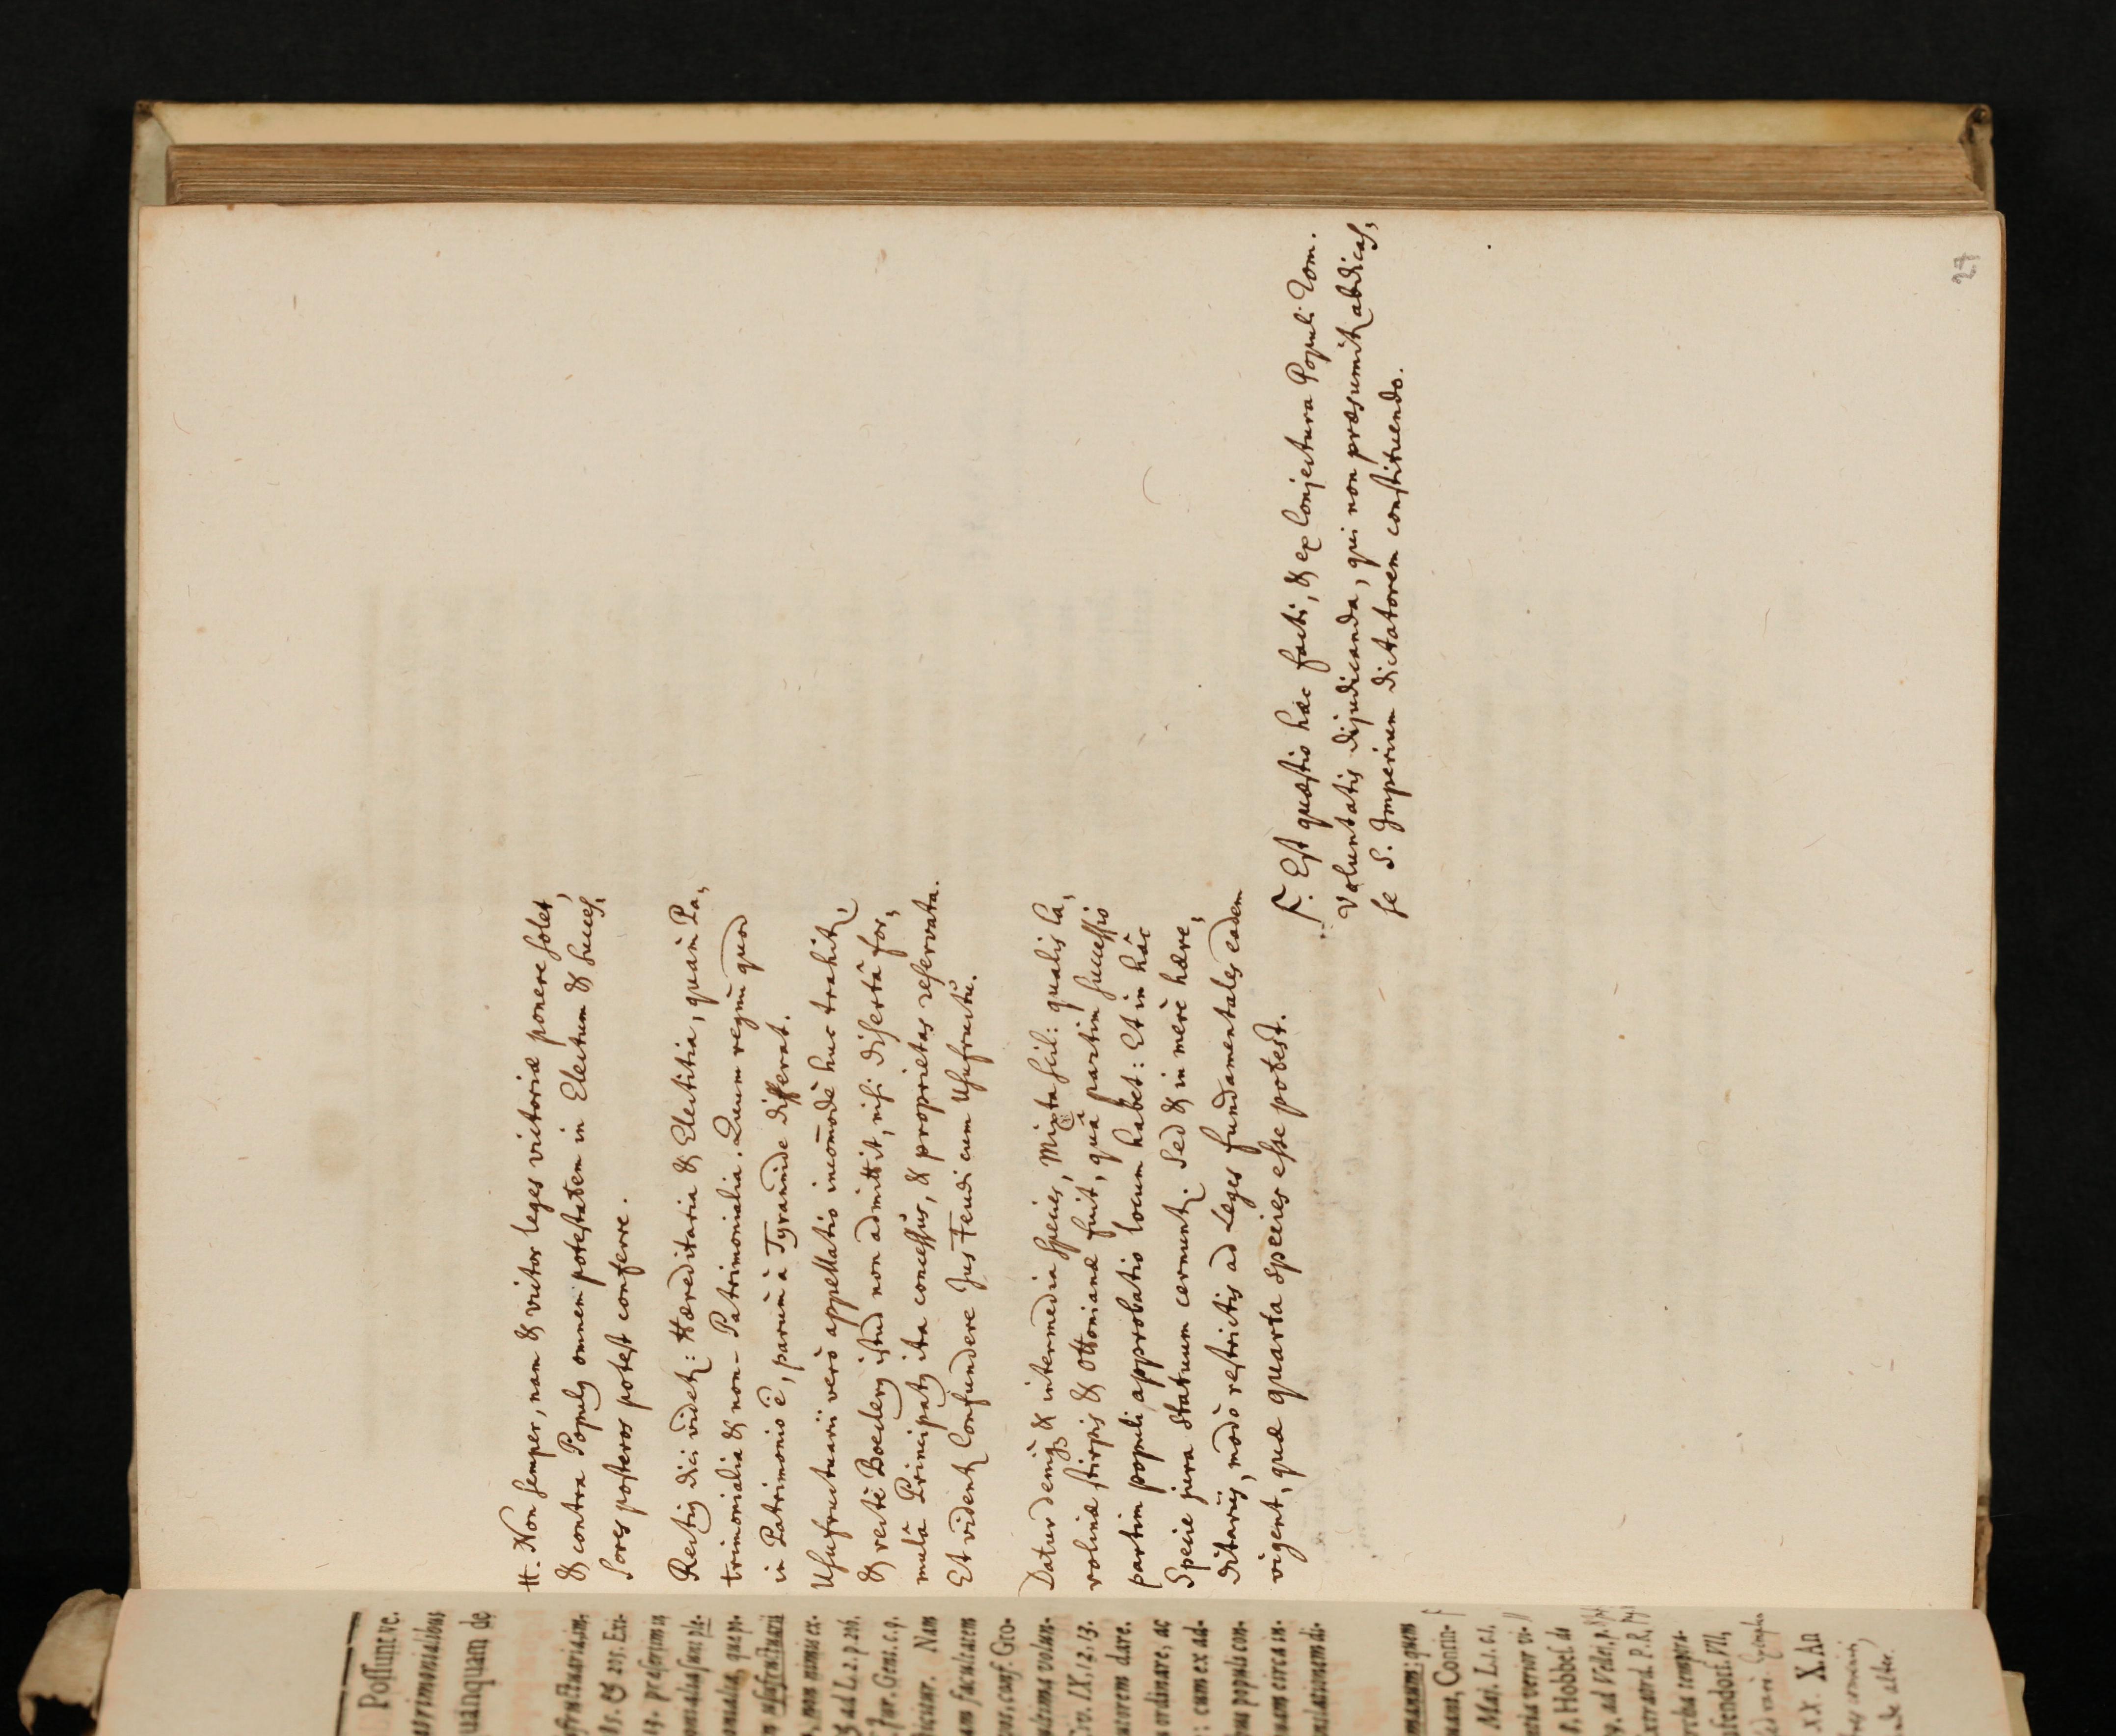 H. Non semper, nam & victor leges victoriæ ponere solet,
& contra Populus omnem potestatem in Electum & succes,
sores posteros potest conferre.
Rectius dici videtur: Hæreditaria & Electitia, quàm Pa,
trimonialia & non-Patrimonialia. Quum regnū quod
in Patrimonio ē, parùm à Tyrannide differat.
Usufructuarii verò appellatio incom̄odè huc trahitur,
& rectè Boeclerus istud non admittit, nisi disertâ for,
mulâ Principatus ita concessus, & proprietas reservata.
Et videntur confundere Jus Feudi cum Usufructu.
Datur denique & intermedia species, Mixta scil: qualis Ca,
rolinæ stirpis & Ottonianæ fuit, quâ partim successio
partim populi approbatio locum habet: Et in hâc
Specie jura Statuum cernuntur. Sed & in merè hære,
ditariis, modò restrictis ad Leges fundamentales eadem
vigent, quæ quarta species esse potest.
F. Est quæstio hæc facti, & ex Conjectura Populi Rom.
Voluntatis dijudicanda, qui non præsumitur abdicas,
se S. Imperium dictatorem constituendo.
27
Possuntve.
atrimonialibus
uanquam de
85. & 215. Exi-
19. præsertim in
onialia, quæ pr-
m usufructuarii
, non nimis ex-
& ad L. 2. p. 206.
Jur. Gent. c. 9.
Nam
am facultatem
Gro-
ultimas volun-
ro. IX, 12, 13.
utorem dare.
ordinare, ac
: cum ex ad-
bus populis con-
uam circa in-
mulationem di-
manam; quem
mans, Conrin-
Maj. L. 1. c. 1.
uria verior vi-
p. Hobbel. de
ad Vellei. p.
rcha tempora-
ufendorf. VII,
xx. X An